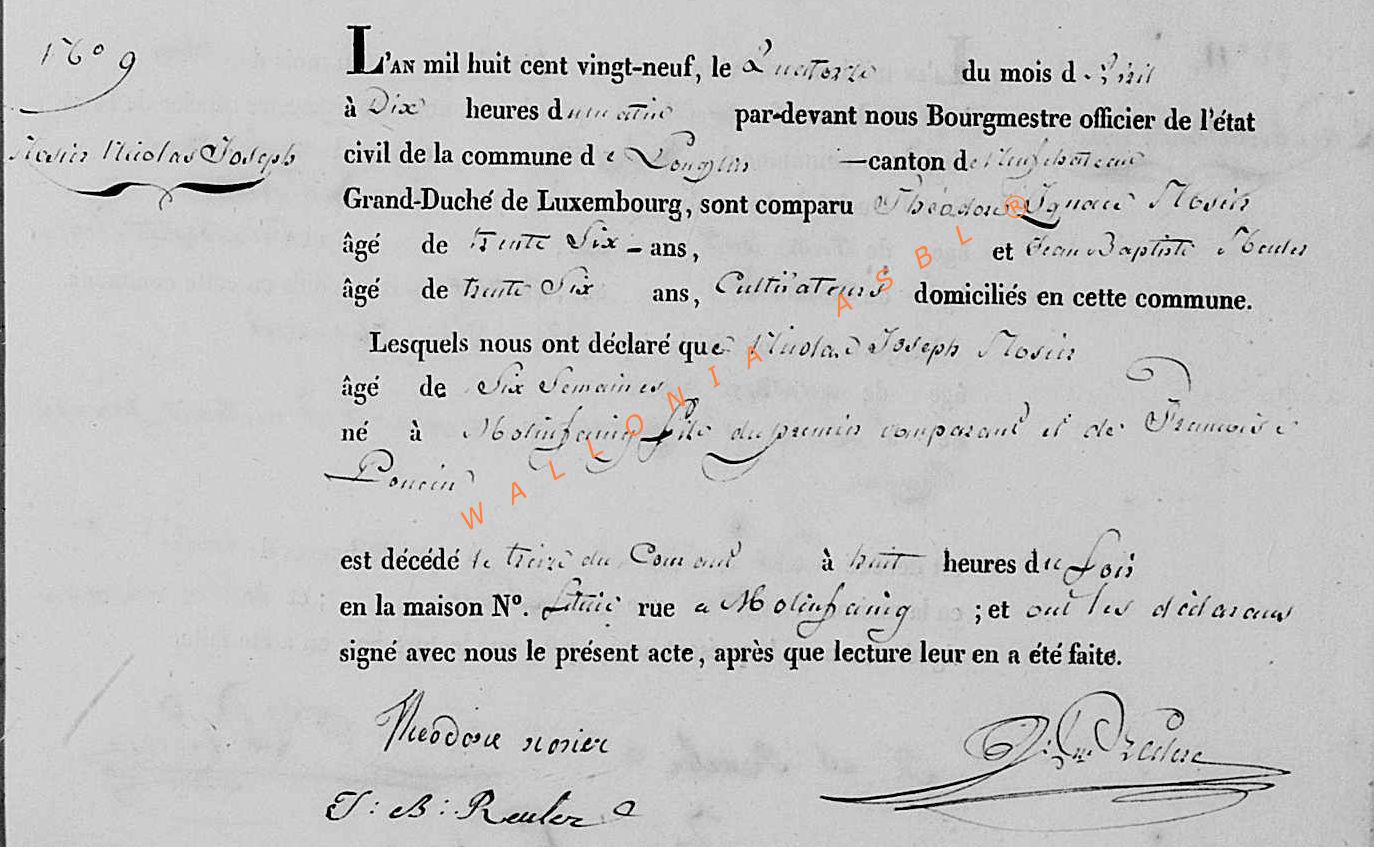 No 9
Rosier Nicolas Joseph
L'AN mil huit cent vingt-neuf, le Quatorze du mois d'avril
à Dix heures du matin par-devant nous Bourgmestre officier de l'état
civil de la commune de Longlier canton de Neufchateau
Grand-Duché de Luxembourg, sont comparu Théodore Ignace Rosier
âgé de trente Six ans, et Jean Baptiste Reuler
âgé de trente Six ans, Cultivateurs domiciliés en cette commune.
Lesquels nous ont déclaré que Nicolas Joseph Rosier
âgé de Six Semaines
né à Molinfaing fils du premier comparant et de Francoise
Poncin
est décédé le treize du Courant à huit heures du Soir
en la maison No. rue a Molinfaing ; et ont les déclarans
signé avec nous le présent acte, après que lecture leur en a été faite.
Theodore rosier
J : B : Reuler
WALLONIA ASBL ®